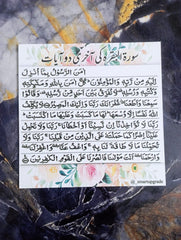 سورۃ البقرہ کی آخری دو آیات
اٰمَنَ الرَّسُوْلُ بِمَآ اُنْزِلَ
اِلَیْهِ مِنْ رَّبِّهٖ وَالْمُؤْمِنُوْنَ ؕ کُلٌّ اٰمَنَ بِاللهِ وَمَلٰٓئِکَتِهٖ
وَکُتُبِهٖ وَرُسُلِهٖ ۟ لَا نُفَرِّقُ بَیْنَ اَحَدٍ مِّنْ رُّسُلِهٖ ۟ وَقَالُوْا
سَمِعْنَا وَاَطَعْنَا غُفْرَانَکَ رَبَّنَا وَاِلَیْکَ الْمَصِیْرُ لَا یُکَلِّفُ
اللهُ نَفْسًا اِلَّا وُسْعَهَا ؕ لَهَا مَا کَسَبَتْ وَعَلَیْهَا مَا اکْتَسَبَتْ ؕ
رَبَّنَا لَا تُؤَاخِذْنَآ اِنْ نَّسِیْنَآ اَوْ اَخْطَاْنَا ۚ رَبَّنَا وَلَا تَحْمِلْ
عَلَیْنَآ اِصْرًا کَمَا حَمَلْتَهٗ عَلَی الَّذِیْنَ مِنْ قَبْلِنَا ۚ رَبَّنَا وَلَا
تُحَمِّلْنَا مَا لَا طَاقَةَ لَنَا بِهٖ ۚ وَاعْفُ عَنَّا ۟ وَاغْفِرْ لَنَا ۟
وَارْحَمْنَا ۟ اَنْتَ مَوْلٰنَا فَانْصُرْنَا عَلَی الْقَوْمِ الْکٰفِرِیْنَ